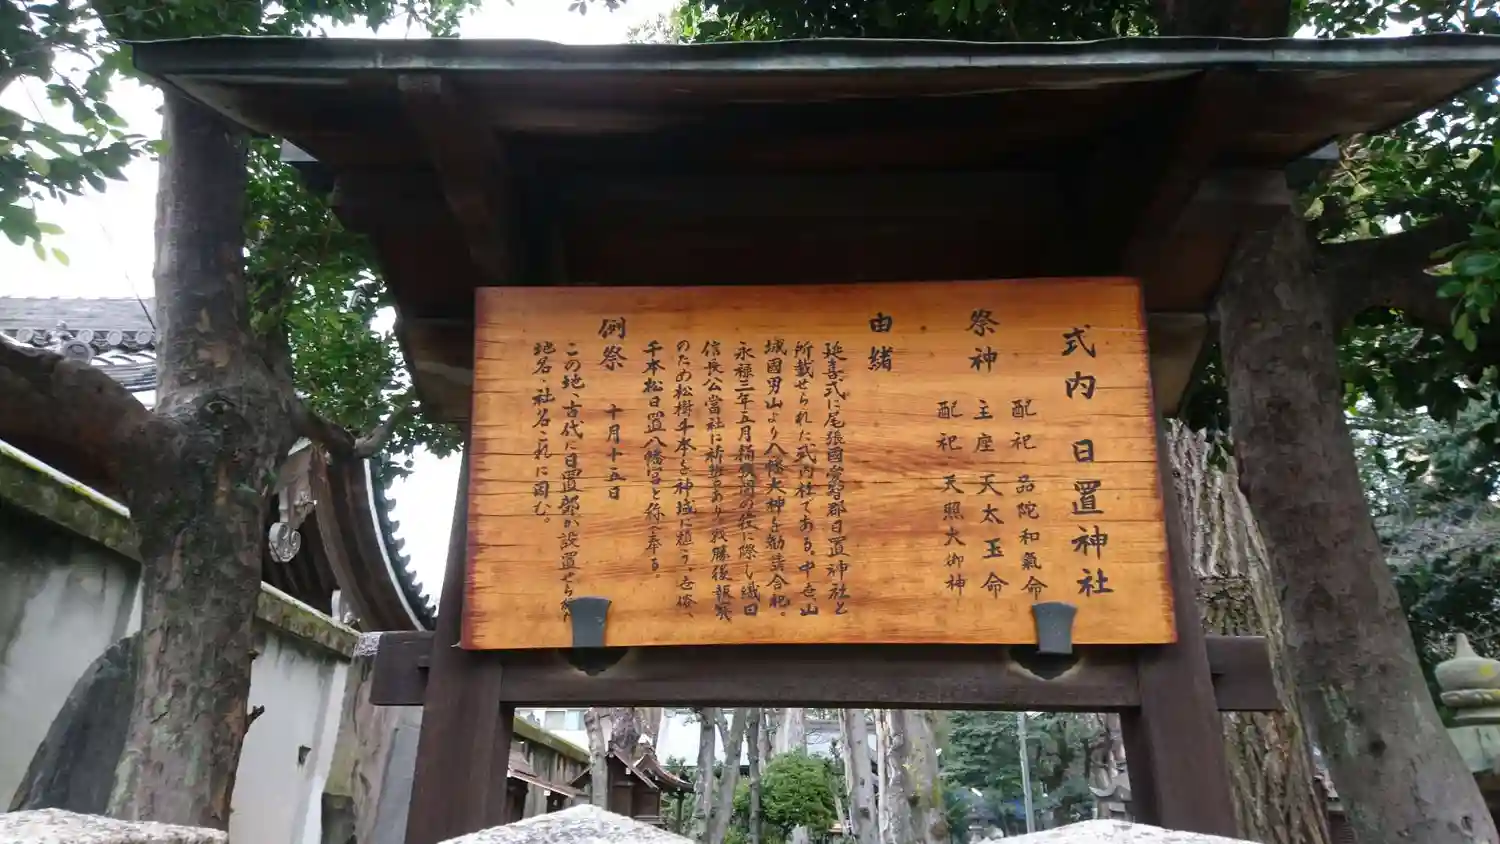 式内 日置神社
祭神
配祀 品陀和氣命
主座 天太玉命
配祀 天照大御神
由緒
延喜式に尾張國愛智郡日置神社と
所載せられた式内社である。中世山
城國男山より八幡大神を勧請合祀。
永禄三年五月桶狭間の役に際し織田
信長公當社に祈誓あり戦勝後報賽
のため松樹千本を神域に植う。世俗、
千本松日置八幡宮と称え奉る。
例祭 十月十五日
この地、古代に日置部が設置せられ
地名・社名これに因む。